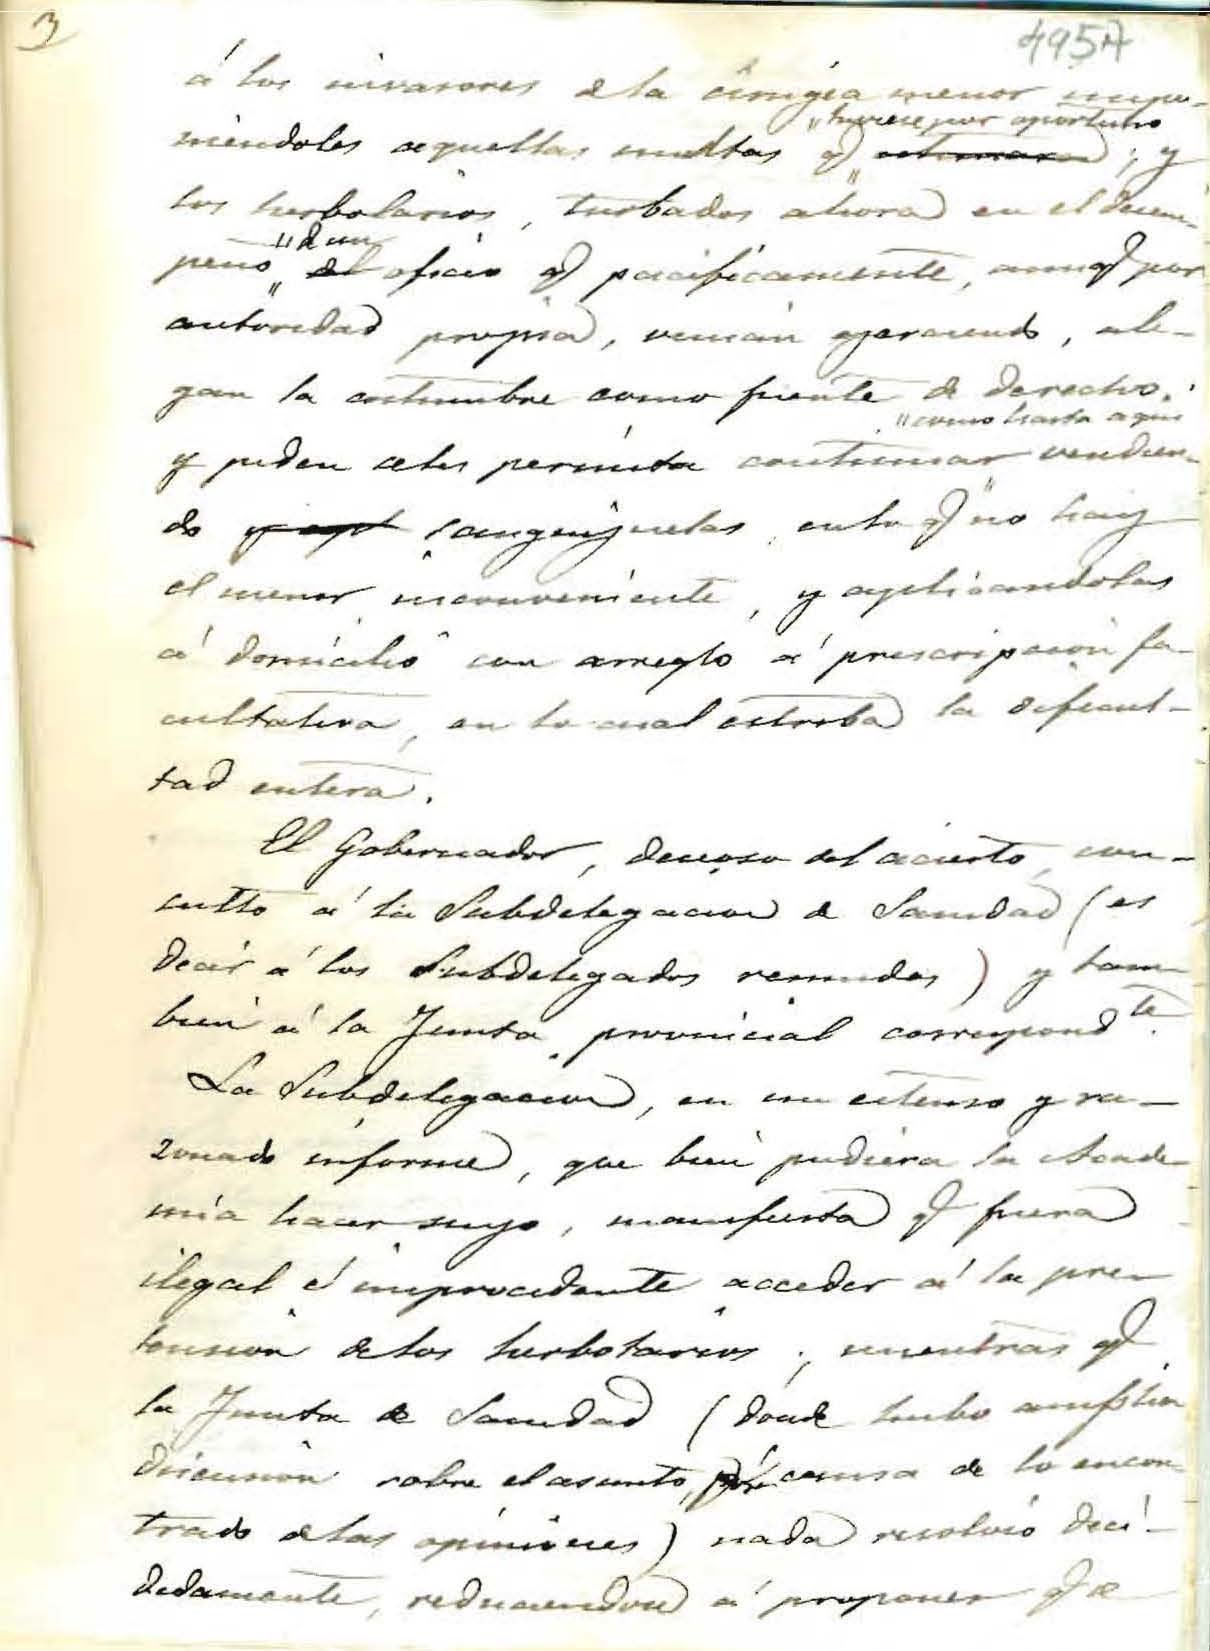 3
495A
á los invasores de la cirugía menor impo-
"tuviese por oportuno
niéndoles aquellas multas q" estimara ; y
los herbolarios, turbados ahora en el desem-
"de un
peño " del oficio q pacíficamente, aunq por
autoridad propia, venian ejerciendo, ale-
gan la costumbre como fuente de derecho,
"como hasta aqui
y piden se les permita continuar " vendien-
do y apl sanguijuelas, en lo q no hay
el menor inconveniente, y aplicandolas
á domicilio con arreglo á prescripcion fa-
cultativa, en lo cual estriba la dificul-
tad entera.
El Gobernador, deseoso del acierto, con-
sultó á la Subdelegacion de Sanidad (es
decir á los Subdelegados reunidos) y tam-
bien á la Junta provincial correspond.te
La Subdelegacion, en un estenso y ra-
zonado informe, que bien pudiera la Acade-
mia hacer suyo, manifiesta q fuera
ilegal é improcedente acceder á la pre-
tension de los herbolarios; mientras q
la Junta de Sanidad (dónde hubo amplia
discusion sobre el asunto, á causa de lo encon-
trado de las opiniones) nada resolvió deci-
didamente, reduciendose á proponer q se